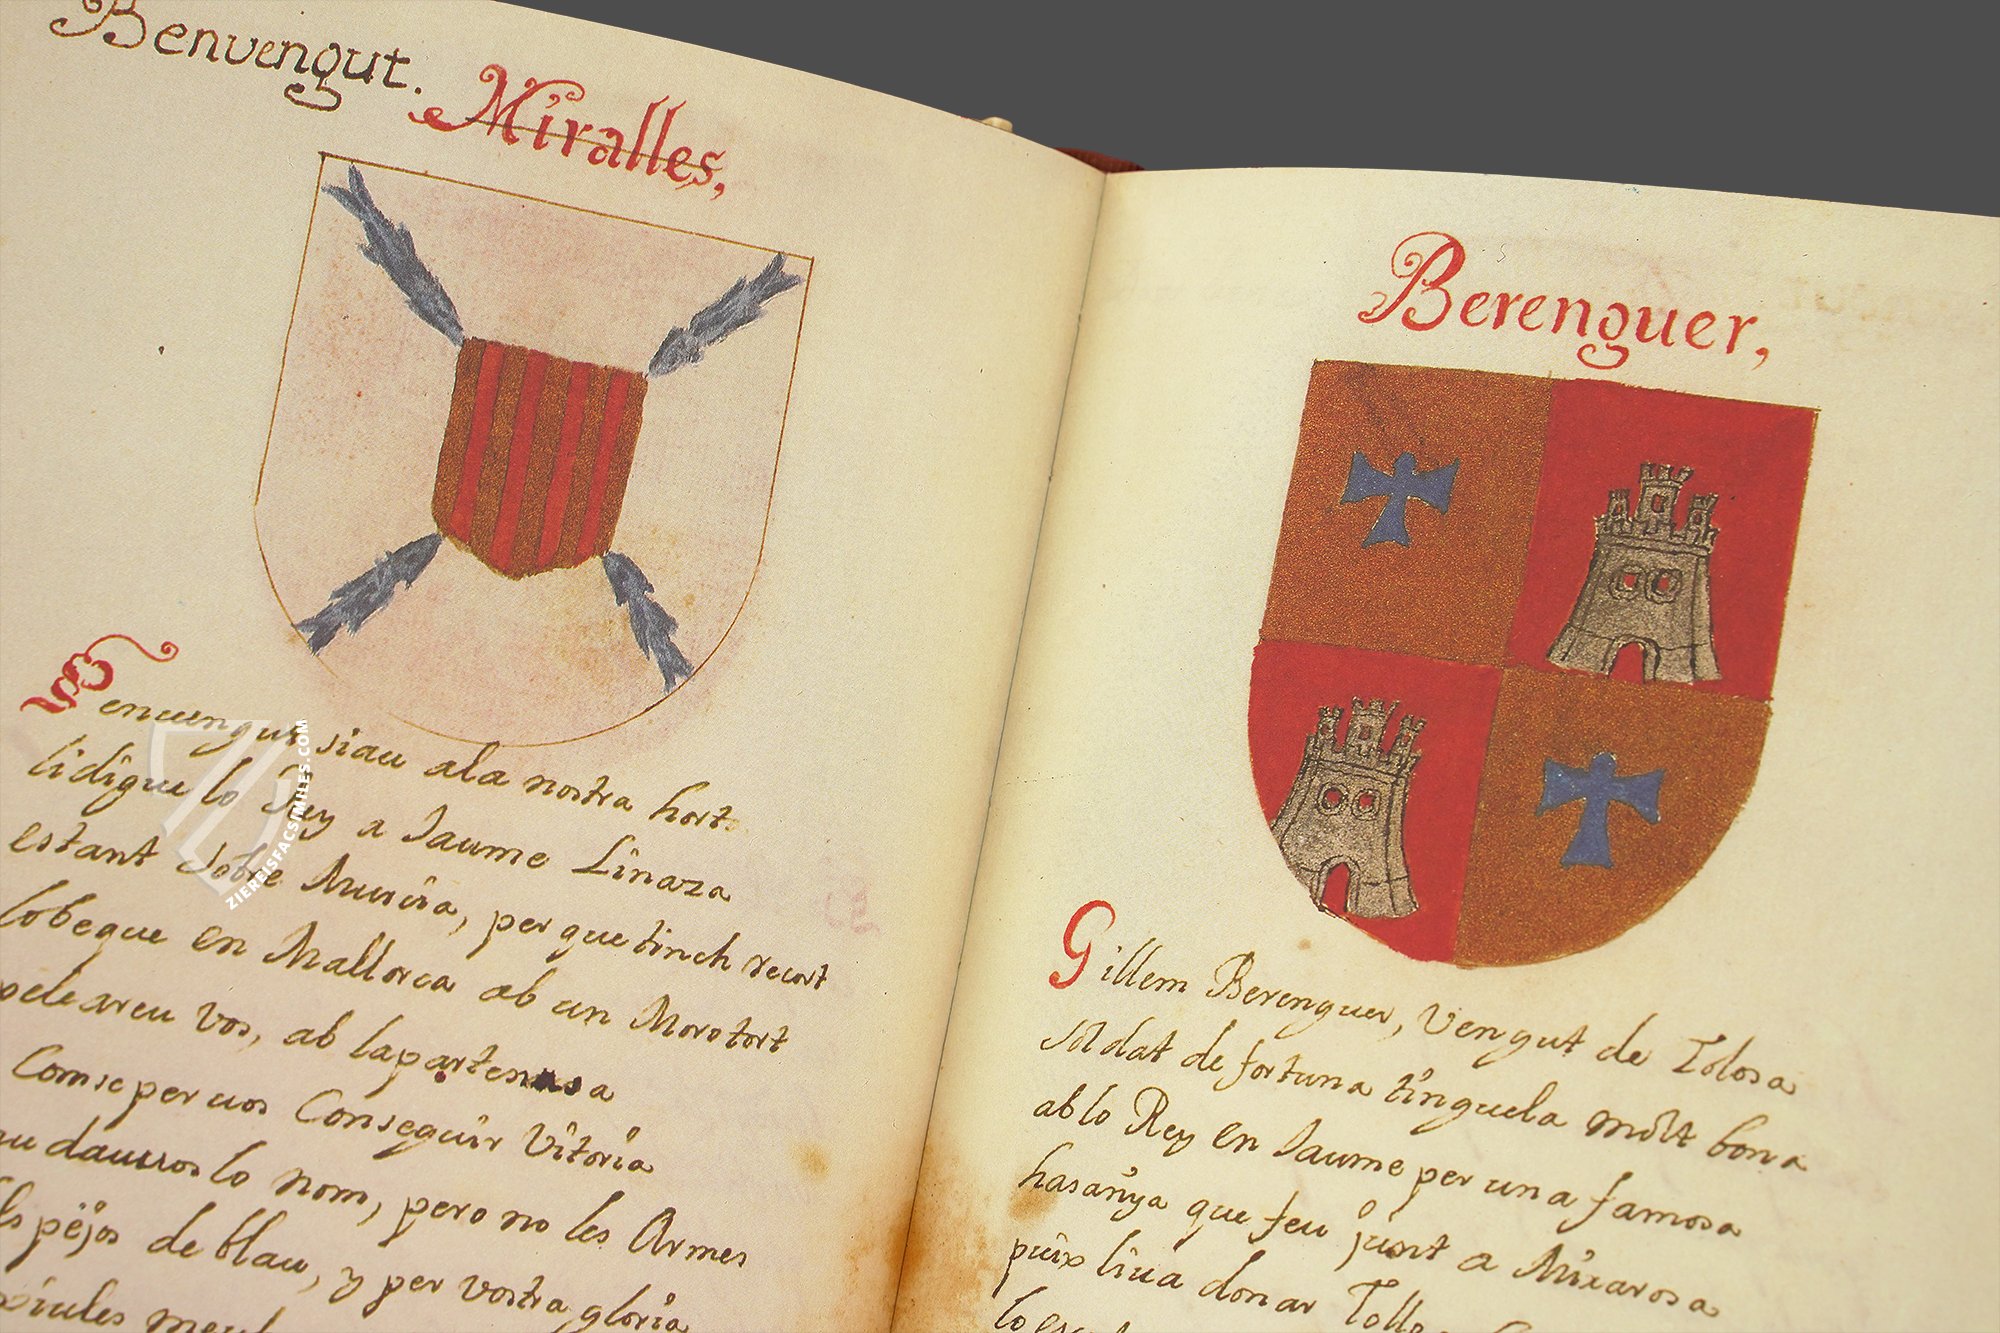 Benvengut.
Miralles,
Benvengut siau ala nostra hort
li digue lo Rey a Jaume Linaza
estant sobre Murcia, per que tinch recort
lobegue en Mallorca ab un Moro fort
peleareu vos, ab la
Com se per vos Conseguir Vitoria
lo nom, pero no les Armes
pejos de blau, y per vostra gloria
Berenguer,
Gillem Berenguer, Vengut de Tolosa
soldat de fortuna tinguela molt bona
ab lo Rey en Jaume per una famosa
hasanya que feu junt a Mixarosa
puix liua donar
lo
ZIEREISFACSIMILES.COM